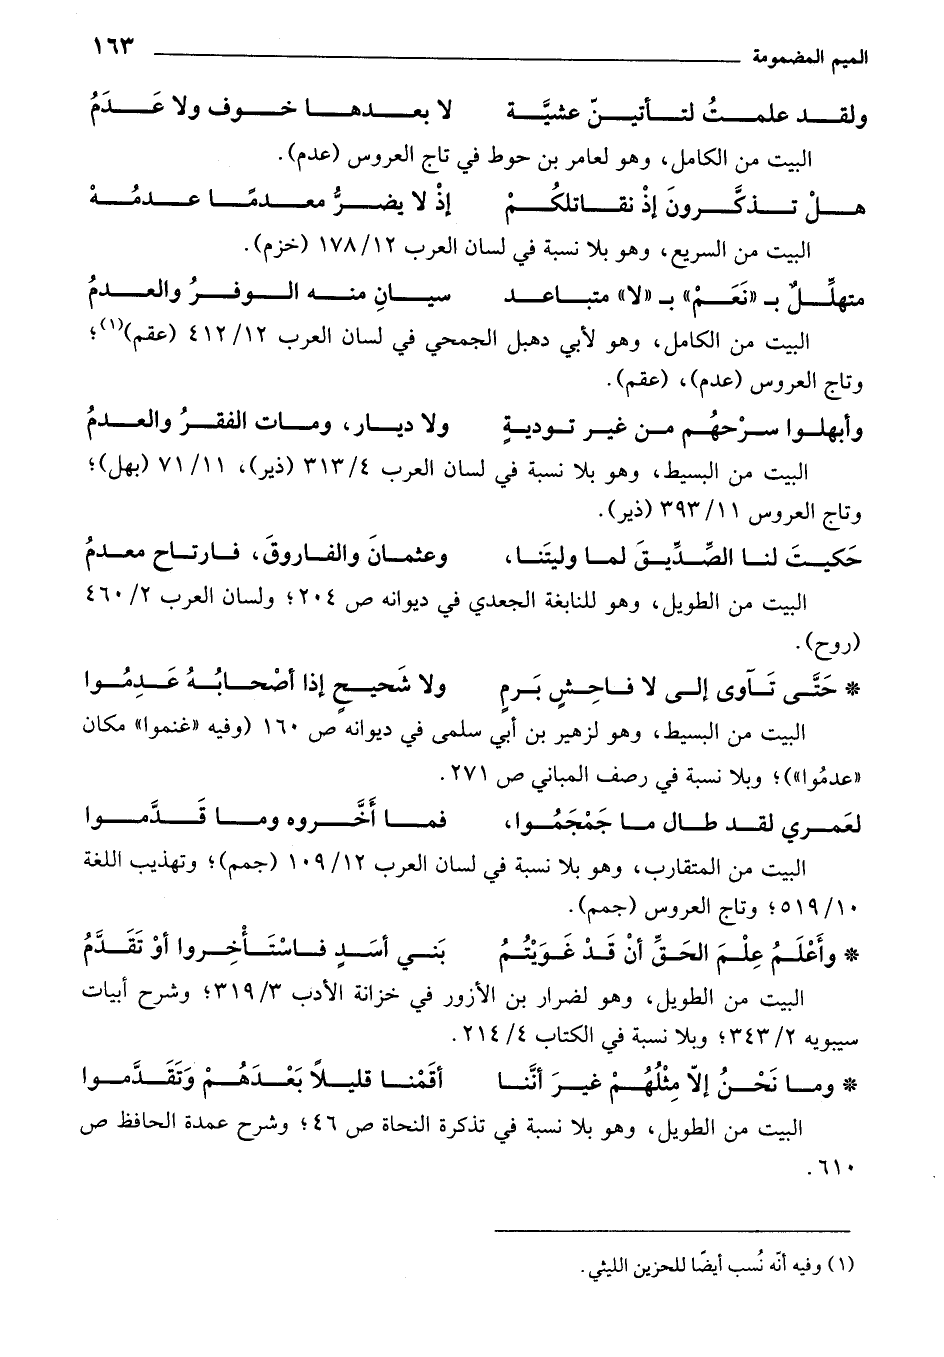 الميم المضمومة ١٦٣
ولقد علمتُ لتأتينّ عشيَّة لا بعدها خوف ولا عَدَمُ
البيت من الكامل، وهو لعامر بن حوط في تاج العروس (عدم).
هلْ تذكَّرونَ إذْ نقاتلكُمْ إذْ لا يضرُّ معدمًا عدمُهْ
البيت من السريع، وهو بلا نسبة في لسان العرب ١٢/ ١٧٨ (خزم).
متهلِّلٌ بـ «نَعَمْ» بـ «لا» متباعد سيانِ منه الوفرُ والعدمُ
البيت من الكامل، وهو لأبي دهبل الجمحي في لسان العرب ١٢/ ٤١٢ (عقم)(١)؛
وتاج العروس (عدم)، (عقم).
وأبهلوا سرْحهُم من غير توديةٍ ولا ديار، ومات الفقرُ والعدمُ
البيت من البسيط، وهو بلا نسبة في لسان العرب ٤/ ٣١٣ (ذير)، ١١/ ٧١ (بهل)؛
وتاج العروس ١١/ ٣٩٣ (ذير).
حَكيتَ لنا الصِّدِّيقَ لما وليتَنا، وعثمانَ والفاروقَ، فارتاح معدمُ
البيت من الطويل، وهو للنابغة الجعدي في ديوانه ص ٢٠٤؛ ولسان العرب ٢/ ٤٦٠
(روح).
* حَتَّى تَآوى إلى لا فاحِشٍ بَرمٍ ولا شَحيحٍ إذا أصْحابُهُ عَدِمُوا
البيت من البسيط، وهو لزهير بن أبي سلمى في ديوانه ص ١٦٠ (وفيه «غنموا» مكان
«عدمُوا»)؛ وبلا نسبة في رصف المباني ص ٢٧١.
لعَمري لقد طال ما جَمْجَمُوا، فما أَخَّروه وما قَدَّموا
البيت من المتقارب، وهو بلا نسبة في لسان العرب ١٢/ ١٠٩ (جمم)؛ وتهذيب اللغة
١٠/ ٥١٩؛ وتاج العروس (جمم).
* وأَعْلَمُ عِلْمَ الحَقِّ أنْ قَدْ غَوَيْتُمُ بَني أسَدٍ فاسْتَأْخِروا أوْ تَقَدَّمُ
البيت من الطويل، وهو لضرار بن الأزور في خزانة الأدب ٣/ ٣١٩؛ وشرح أبيات
سيبويه ٢/ ٣٤٣؛ وبلا نسبة في الكتاب ٤/ ٢١٤.
* وما نَحْنُ إلاّ مِثْلُهُمْ غيرَ أنَّنا أقَمْنا قليلاً بَعْدَهُمْ وَتَقَدَّموا
البيت من الطويل، وهو بلا نسبة في تذكرة النحاة ص ٤٦؛ وشرح عمدة الحافظ ص
٦١٠.
(١) وفيه أنّه نُسب أيضًا للحزين الليثي.